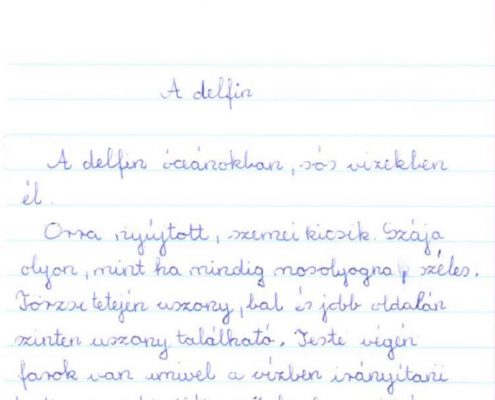 A delfin
A delfin óceánokban, sós vizekben
él.
Orra nyújtott, szemei kicsik. Szája
olyan, mint ha mindig mosolyogna, széles.
Törzse tetején uszony, bal és jobb oldalán
szinten uszony található. Teste végén
farok van amivel a vízben irányítani